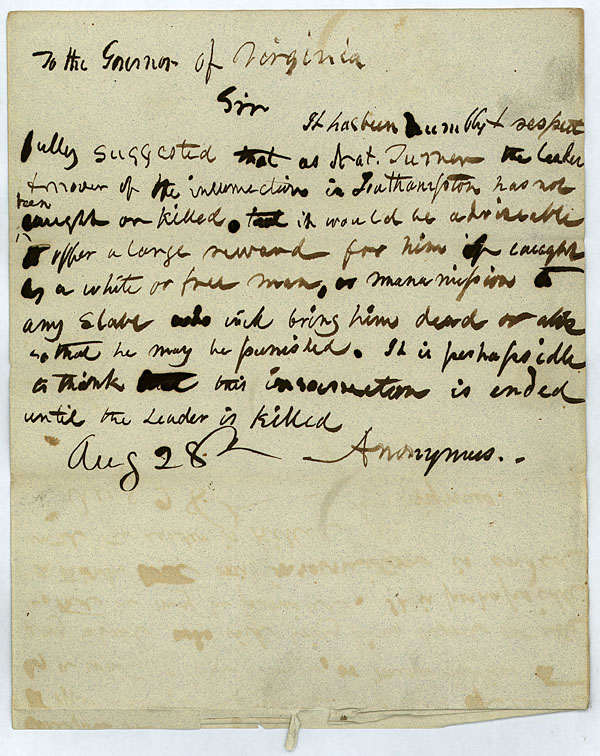 To the Governor of Virginia
Sir
It has been humbly & respect
fully suggested that as Nat. Turner the leader
& mover of the insurrection in Southampton has not
been
caught or killed, that it would be adviseable
to offer a large reward for him if caught
by a white or free man, or manumission to
any Slave who will bring him dead or alive
so that he may be punished. It is perhaps idle
to think that this insurrection is ended
until the Leader is killed
Aug 28th Anonymus.